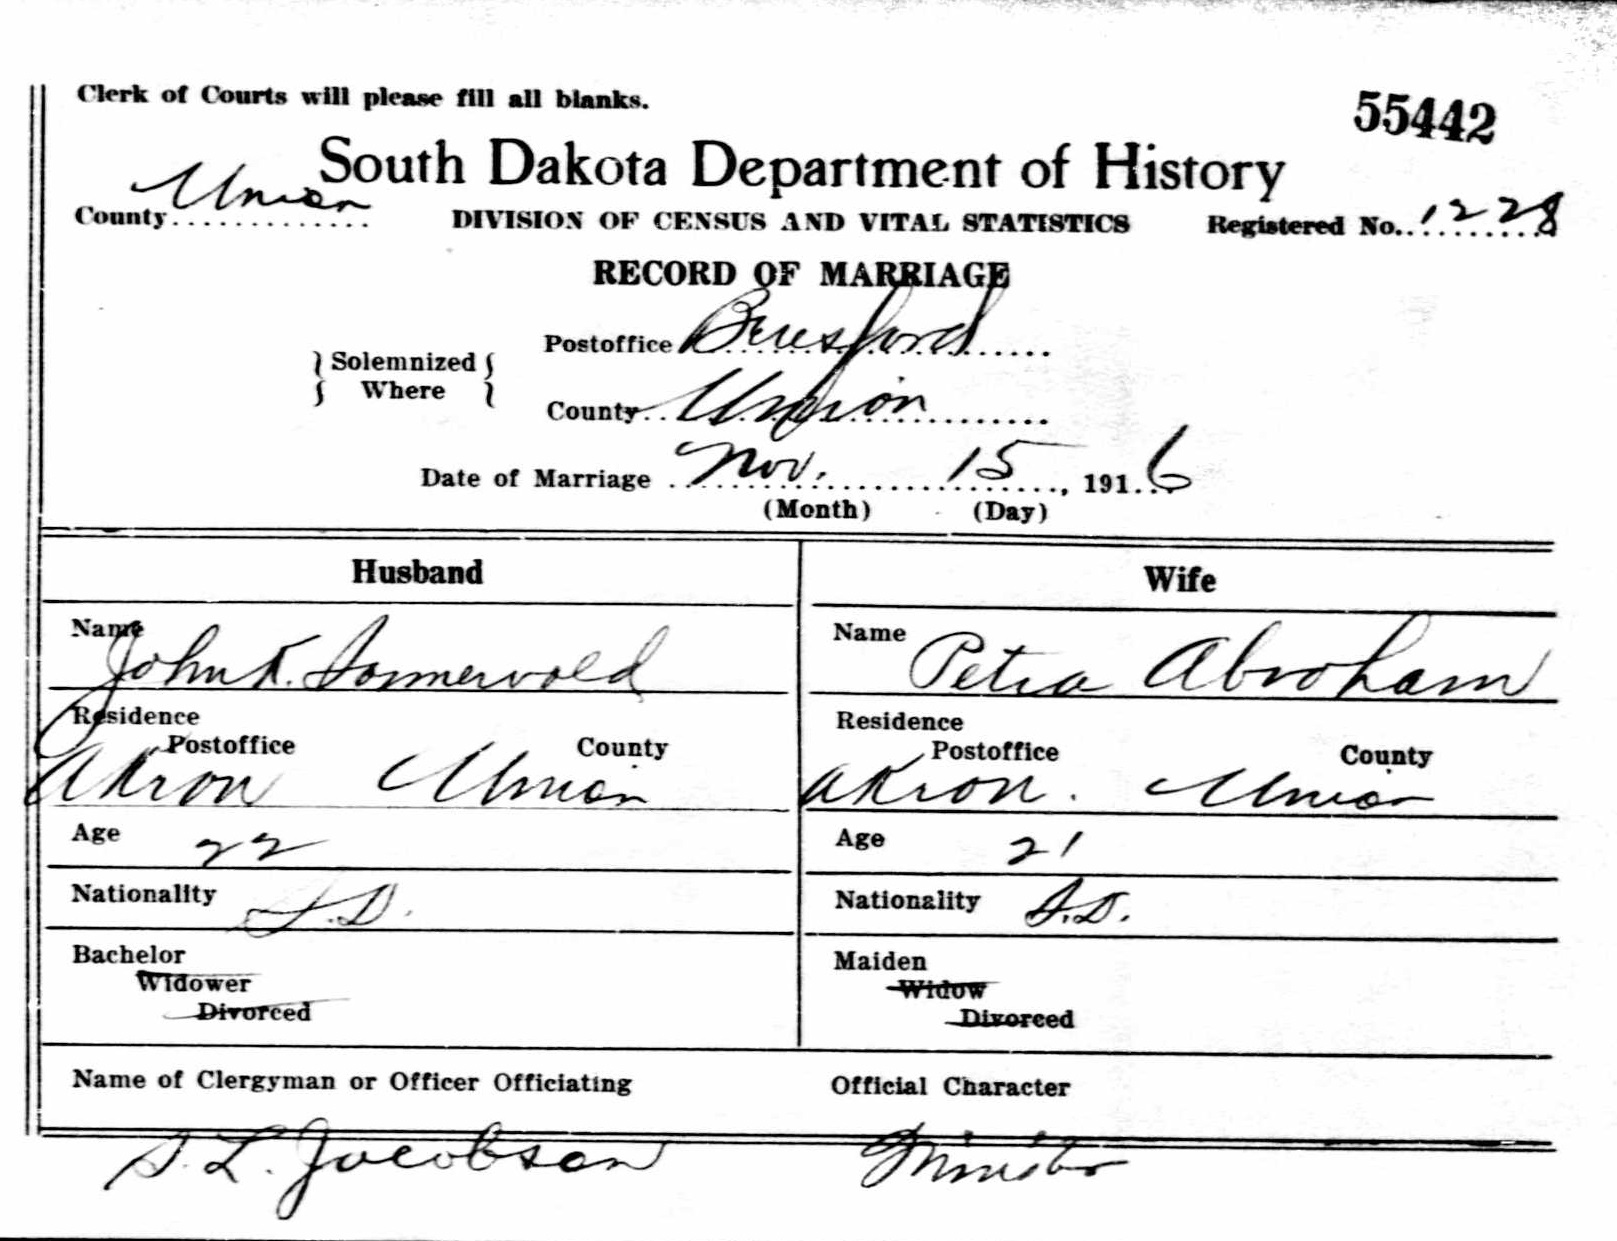 Clerk of Courts will please fill all blanks.
55442
South Dakota Department of History
County Union
DIVISION OF CENSUS AND VITAL STATISTICS
Registered No. 1228
RECORD OF MARRIAGE
Solemnized Where
Postoffice Beresford
County Union
Date of Marriage Nov. 15, 1916
(Month) (Day)
Husband
Wife
Name John K. Sonnervold
Name Petra Abraham
Residence
Postoffice County
Akron Union
Residence
Postoffice County
Akron. Union
Age 22
Age 21
Nationality S.D.
Nationality S.D.
Bachelor
Widower
Divorced
Maiden
Widow
Divorced
Name of Clergyman or Officer Officiating
Official Character
S. L. Jacobson
Minister